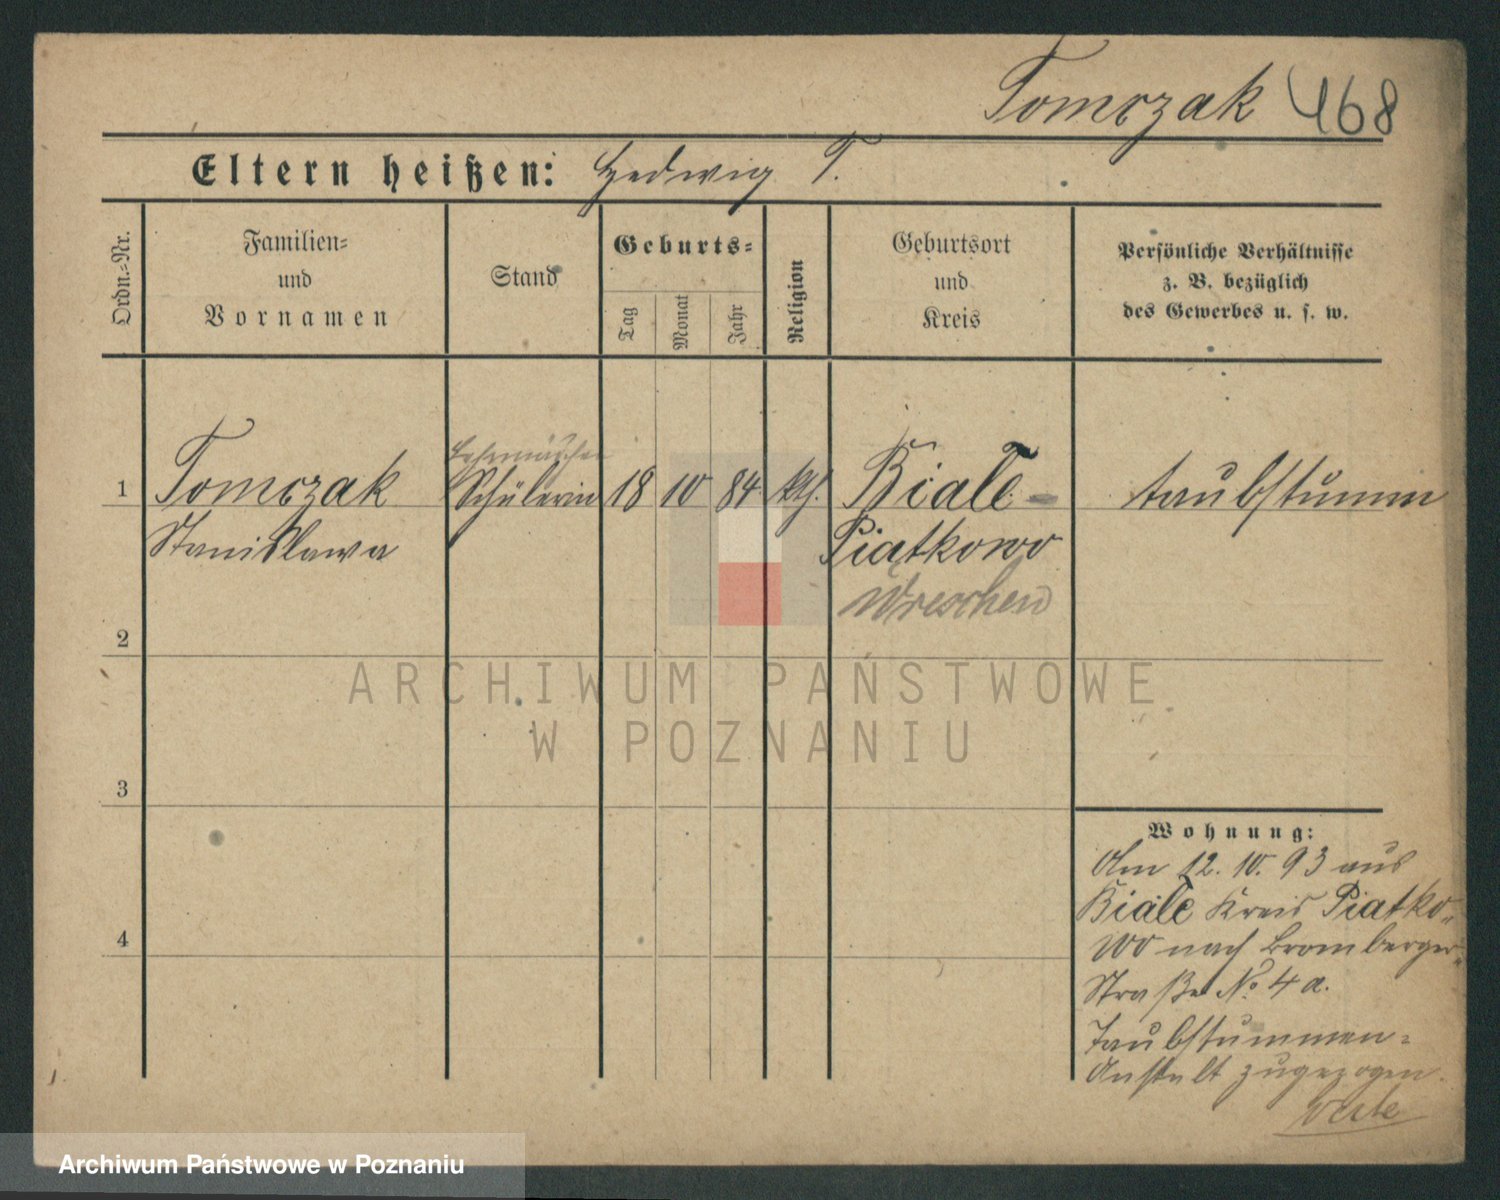 Tomczak 468
Eltern heißen: Hedwig T.
Ordn.-Nr.
Familien-
und
Vornamen
Stand
Geburts-
Tag
Monat
Jahr
Religion
Geburtsort
und
Kreis
Persönliche Verhältnisse
z. B. bezüglich
des Gewerbes u. s. w.
1 Tomczak Schülerin 18 10 84 kth. Biale- taubstumm
Stanislawa Piatkowo
Wreschen
2
ARCHIWUM PAŃSTWOWE
W POZNANIU
3
4
Wohnung:
Am 12. 10. 93 aus
Biale Kreis Piatko-
wo nach Bromberger-
Straße No 4a.
Taubstummen-
Anstalt zugezogen.
Archiwum Państwowe w Poznaniu